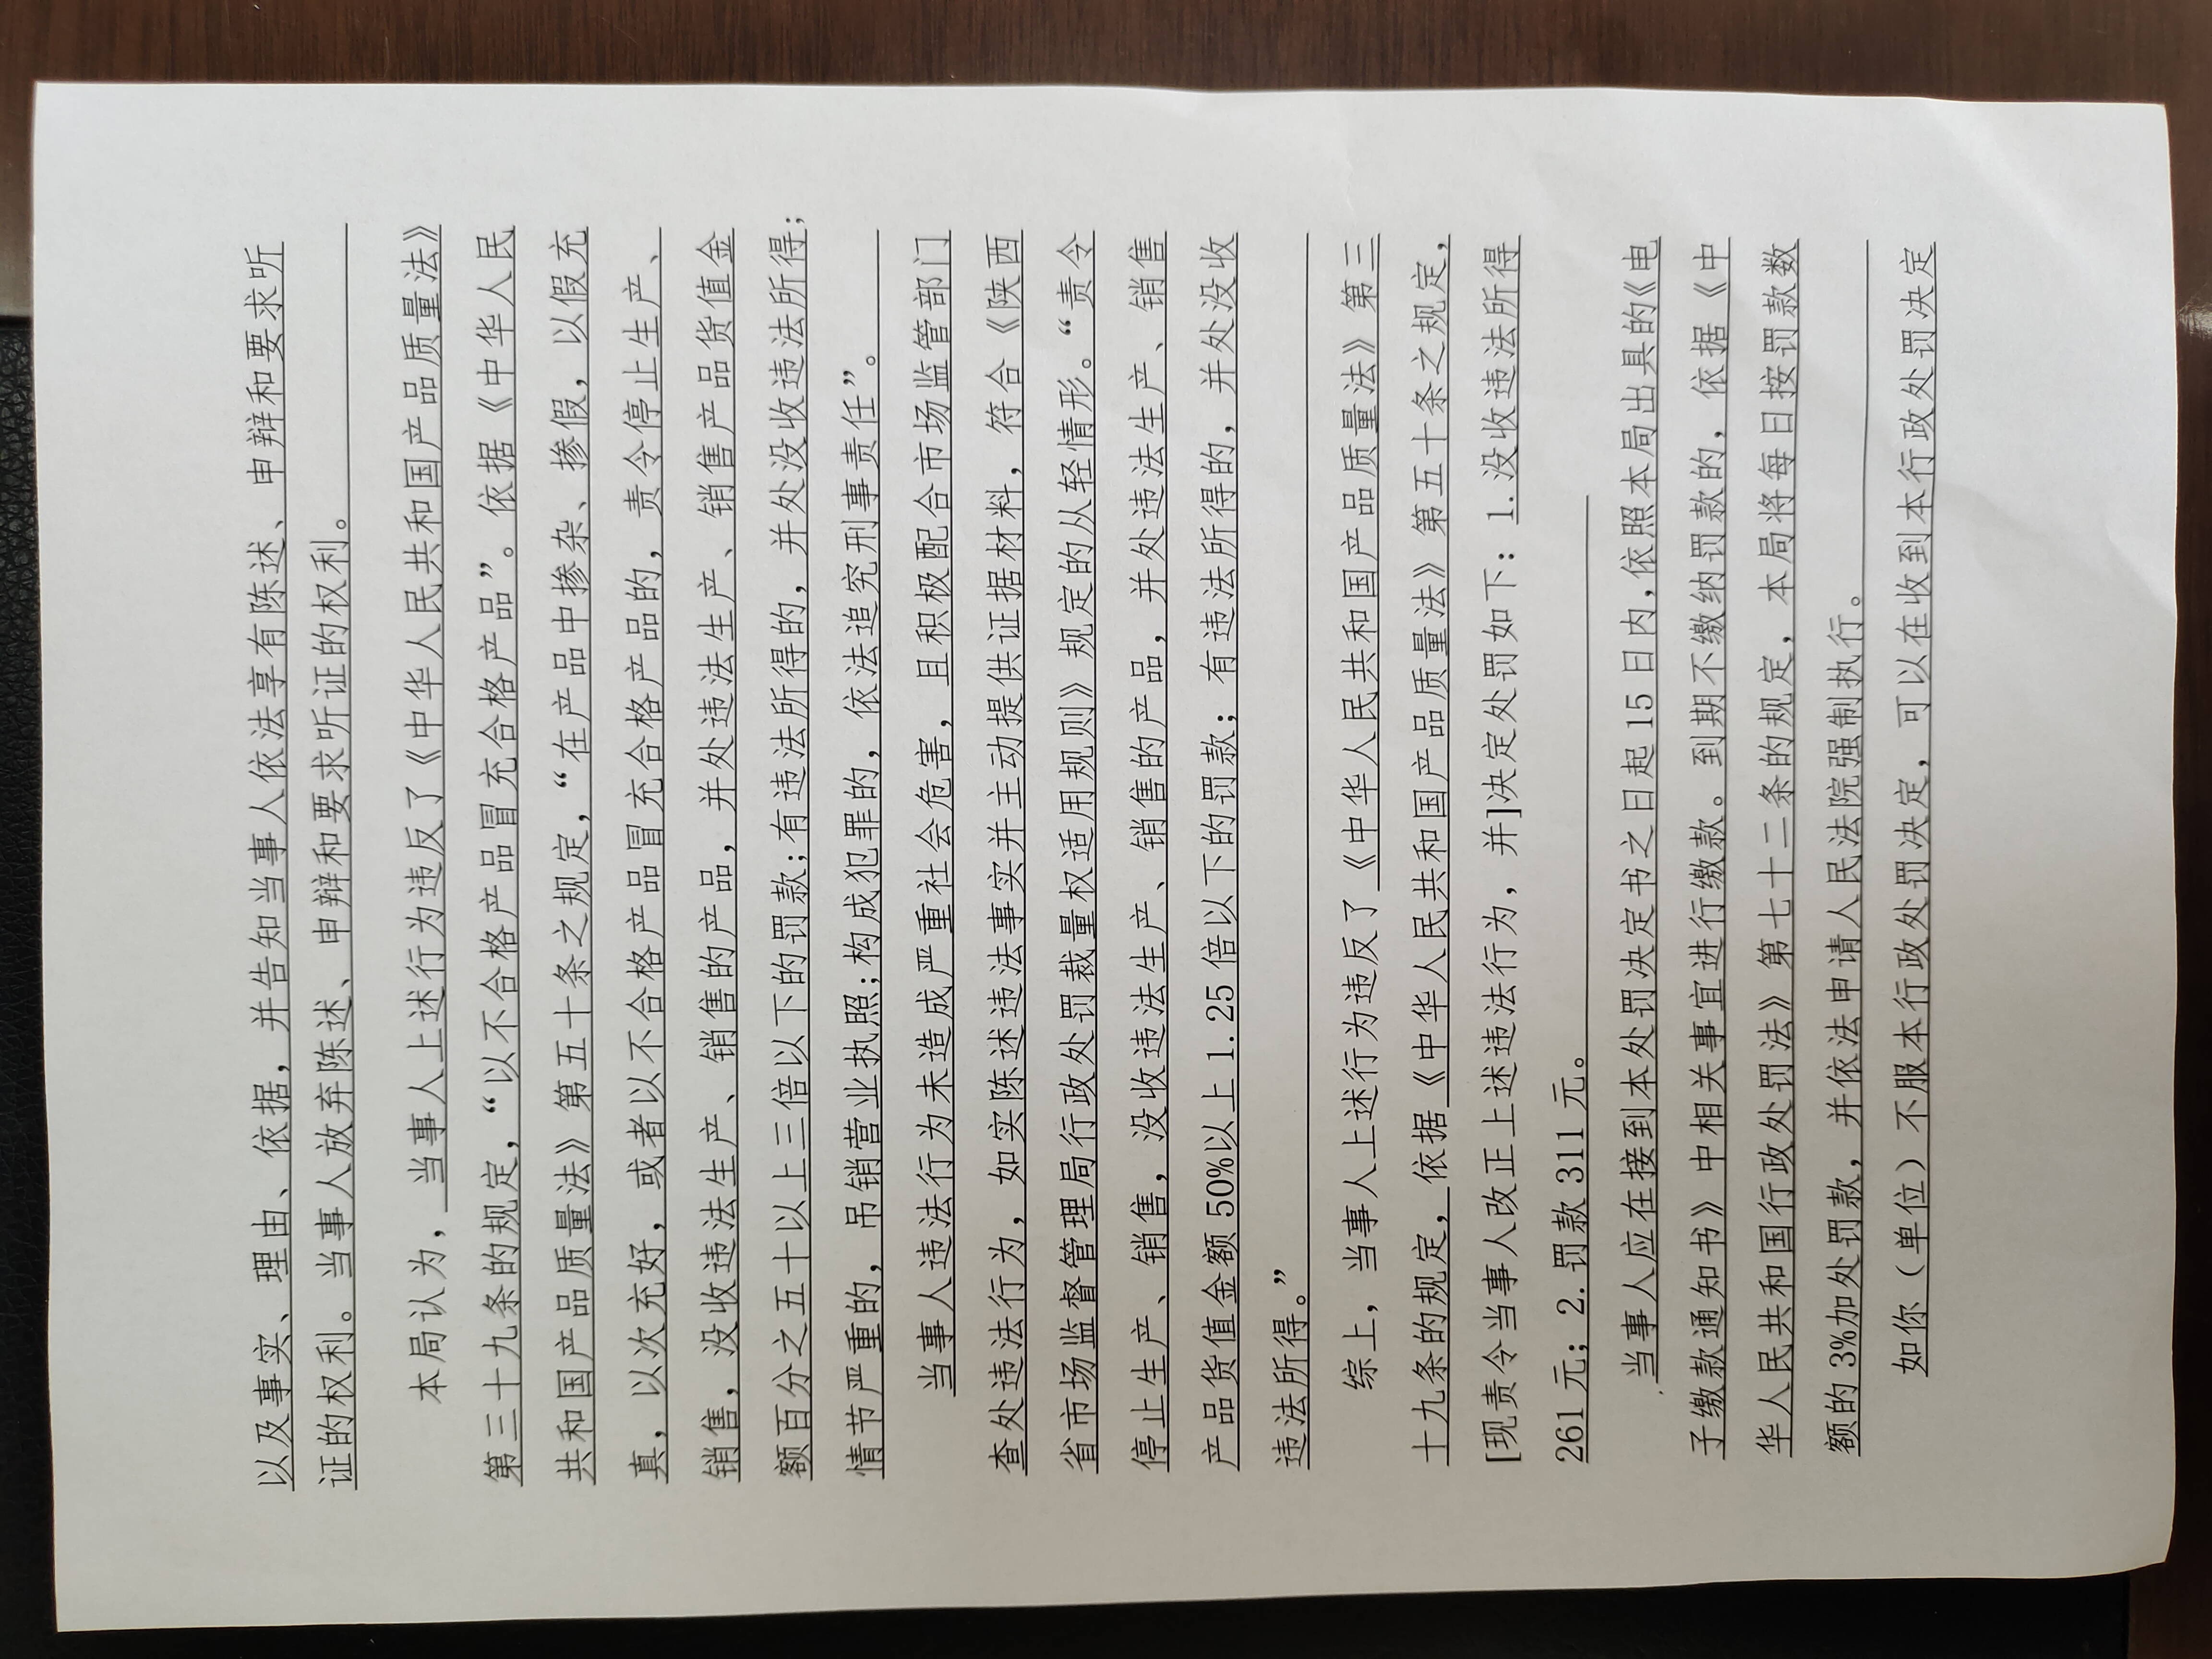 以及事实、理由、依据，并告知当事人依法享有陈述、申辩和要求听
证的权利。当事人放弃陈述、申辩和要求听证的权利。
本局认为，当事人上述行为违反了《中华人民共和国产品质量法》
第三十九条的规定，“以不合格产品冒充合格产品”。依据《中华人民
共和国产品质量法》第五十条之规定，“在产品中掺杂、掺假，以假充
真，以次充好，或者以不合格产品冒充合格产品的，责令停止生产、
销售，没收违法生产、销售的产品，并处违法生产、销售产品货值金
额百分之五十以上三倍以下的罚款;有违法所得的，并处没收违法所得;
情节严重的，吊销营业执照;构成犯罪的，依法追究刑事责任”。
当事人违法行为未造成严重社会危害，且积极配合市场监管部门
查处违法行为，如实陈述违法事实并主动提供证据材料，符合《陕西
省市场监督管理局行政处罚裁量权适用规则》规定的从轻情形。“责令
停止生产、销售，没收违法生产、销售的产品，并处违法生产、销售
产品货值金额 50%以上 1.25 倍以下的罚款；有违法所得的，并处没收
违法所得。”
综上，当事人上述行为违反了《中华人民共和国产品质量法》第三
十九条的规定，依据《中华人民共和国产品质量法》第五十条之规定，
[现责令当事人改正上述违法行为，并]决定处罚如下：1.没收违法所得
261 元；2.罚款 311 元。
当事人应在接到本处罚决定书之日起 15 日内,依照本局出具的《电
子缴款通知书》中相关事宜进行缴款。到期不缴纳罚款的，依据《中
华人民共和国行政处罚法》第七十二条的规定，本局将每日按罚款数
额的 3%加处罚款，并依法申请人民法院强制执行。
如你（单位）不服本行政处罚决定，可以在收到本行政处罚决定